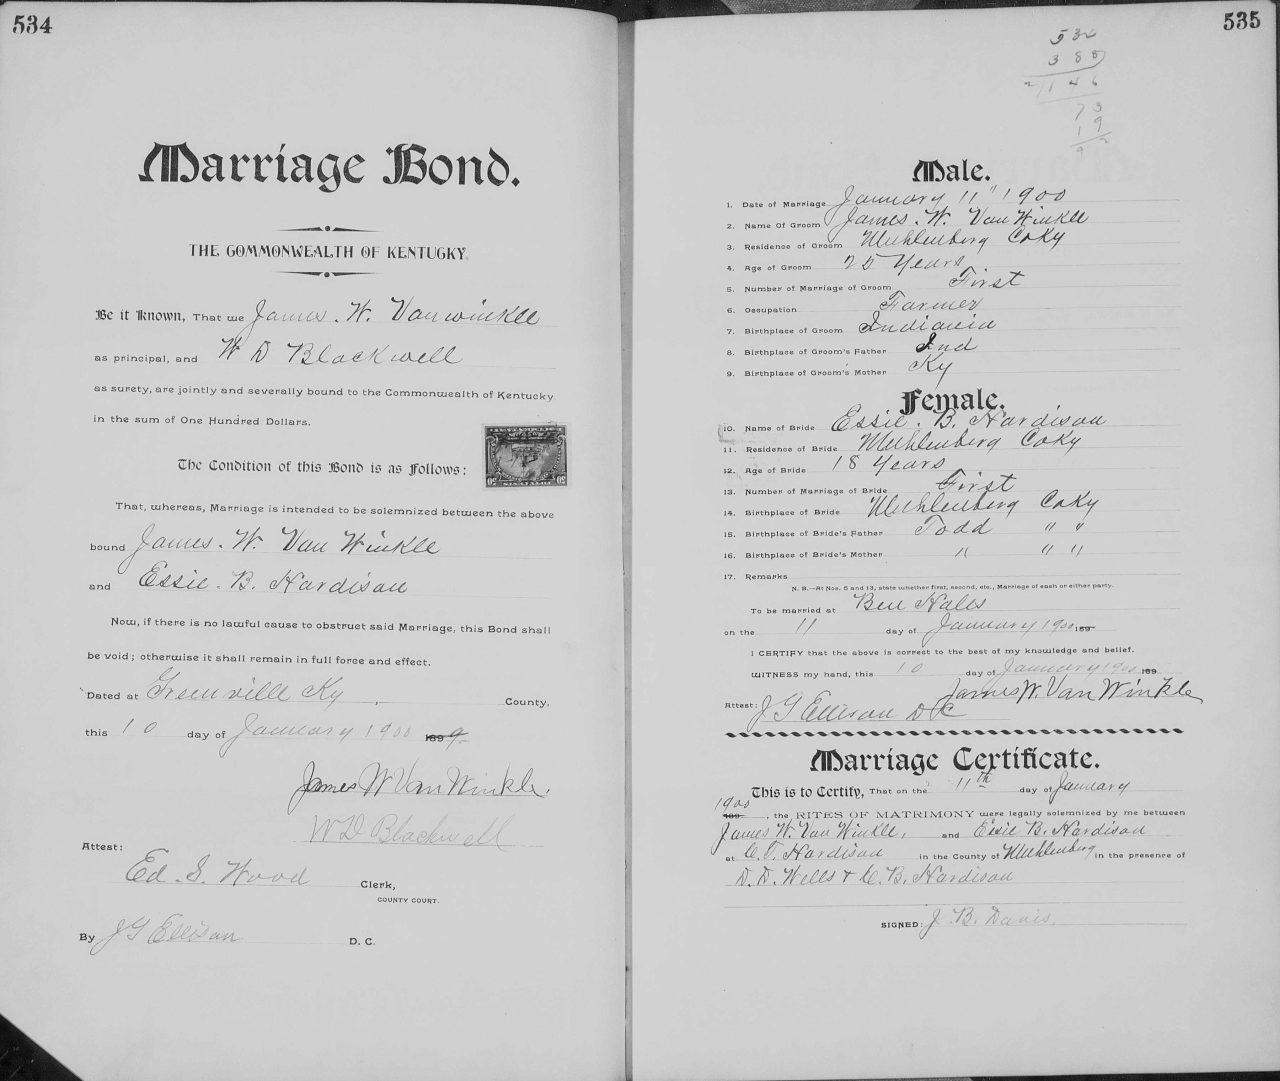 534
Marriage Bond.
THE COMMONWEALTH OF KENTUCKY.
Be it Known, That we James. W. Vanwinkle
as principal, and W D Blackwell
as surety, are jointly and severally bound to the Commonwealth of Kentucky
in the sum of One Hundred Dollars.
The Condition of this Bond is as Follows:
That, whereas, Marriage is intended to be solemnized between the above
bound James. W. Van Winkle
and Essie. B. Hardison
Now, if there is no lawful cause to obstruct said Marriage, this Bond shall
be void; otherwise it shall remain in full force and effect.
Dated at Greenville Ky County,
this 10 day of January 1900 189 9
James W Van Winkle.
W D Blackwell
Attest:
Ed. S. Wood Clerk,
COUNTY COURT.
By J G Ellison D. C.
535
532
388
146
73
19
Male.
1. Date of Marriage January 11" 1900
2. Name Of Groom James. W. Van Winkle
3. Residence of Groom Muhlenberg Co Ky
4. Age of Groom 25 Years
5. Number of Marriage of Groom First
6. Occupation Farmer
7. Birthplace of Groom Indiania
8. Birthplace of Groom's Father Ind
9. Birthplace of Groom's Mother Ky
Female.
10. Name of Bride Essie. B. Hardison
11. Residence of Bride Muhlenberg Co Ky
12. Age of Bride 18 Years
13. Number of Marriage of Bride First
14. Birthplace of Bride Muhlenberg Co Ky
15. Birthplace of Bride's Father Todd " "
16. Birthplace of Bride's Mother " " "
17. Remarks
N. B.—At Nos. 5 and 13, state whether first, second, etc., Marriage of each or either party.
To be married at Ben Hales
on the 11 day of January 1900 189
I CERTIFY that the above is correct to the best of my knowledge and belief.
WITNESS my hand, this 10 day of January 1900 189
James W. Van Winkle
Attest: J G Ellison D C
Marriage Certificate.
This is to Certify, That on the 11th day of January
1900
189 , the RITES OF MATRIMONY were legally solemnized by me between
James W. Van Winkle, and Essie B. Hardison
at C. T. Hardison in the County of Muhlenberg in the presence of
D. D. Wells & C. B. Hardison
SIGNED: J. B. Davis.